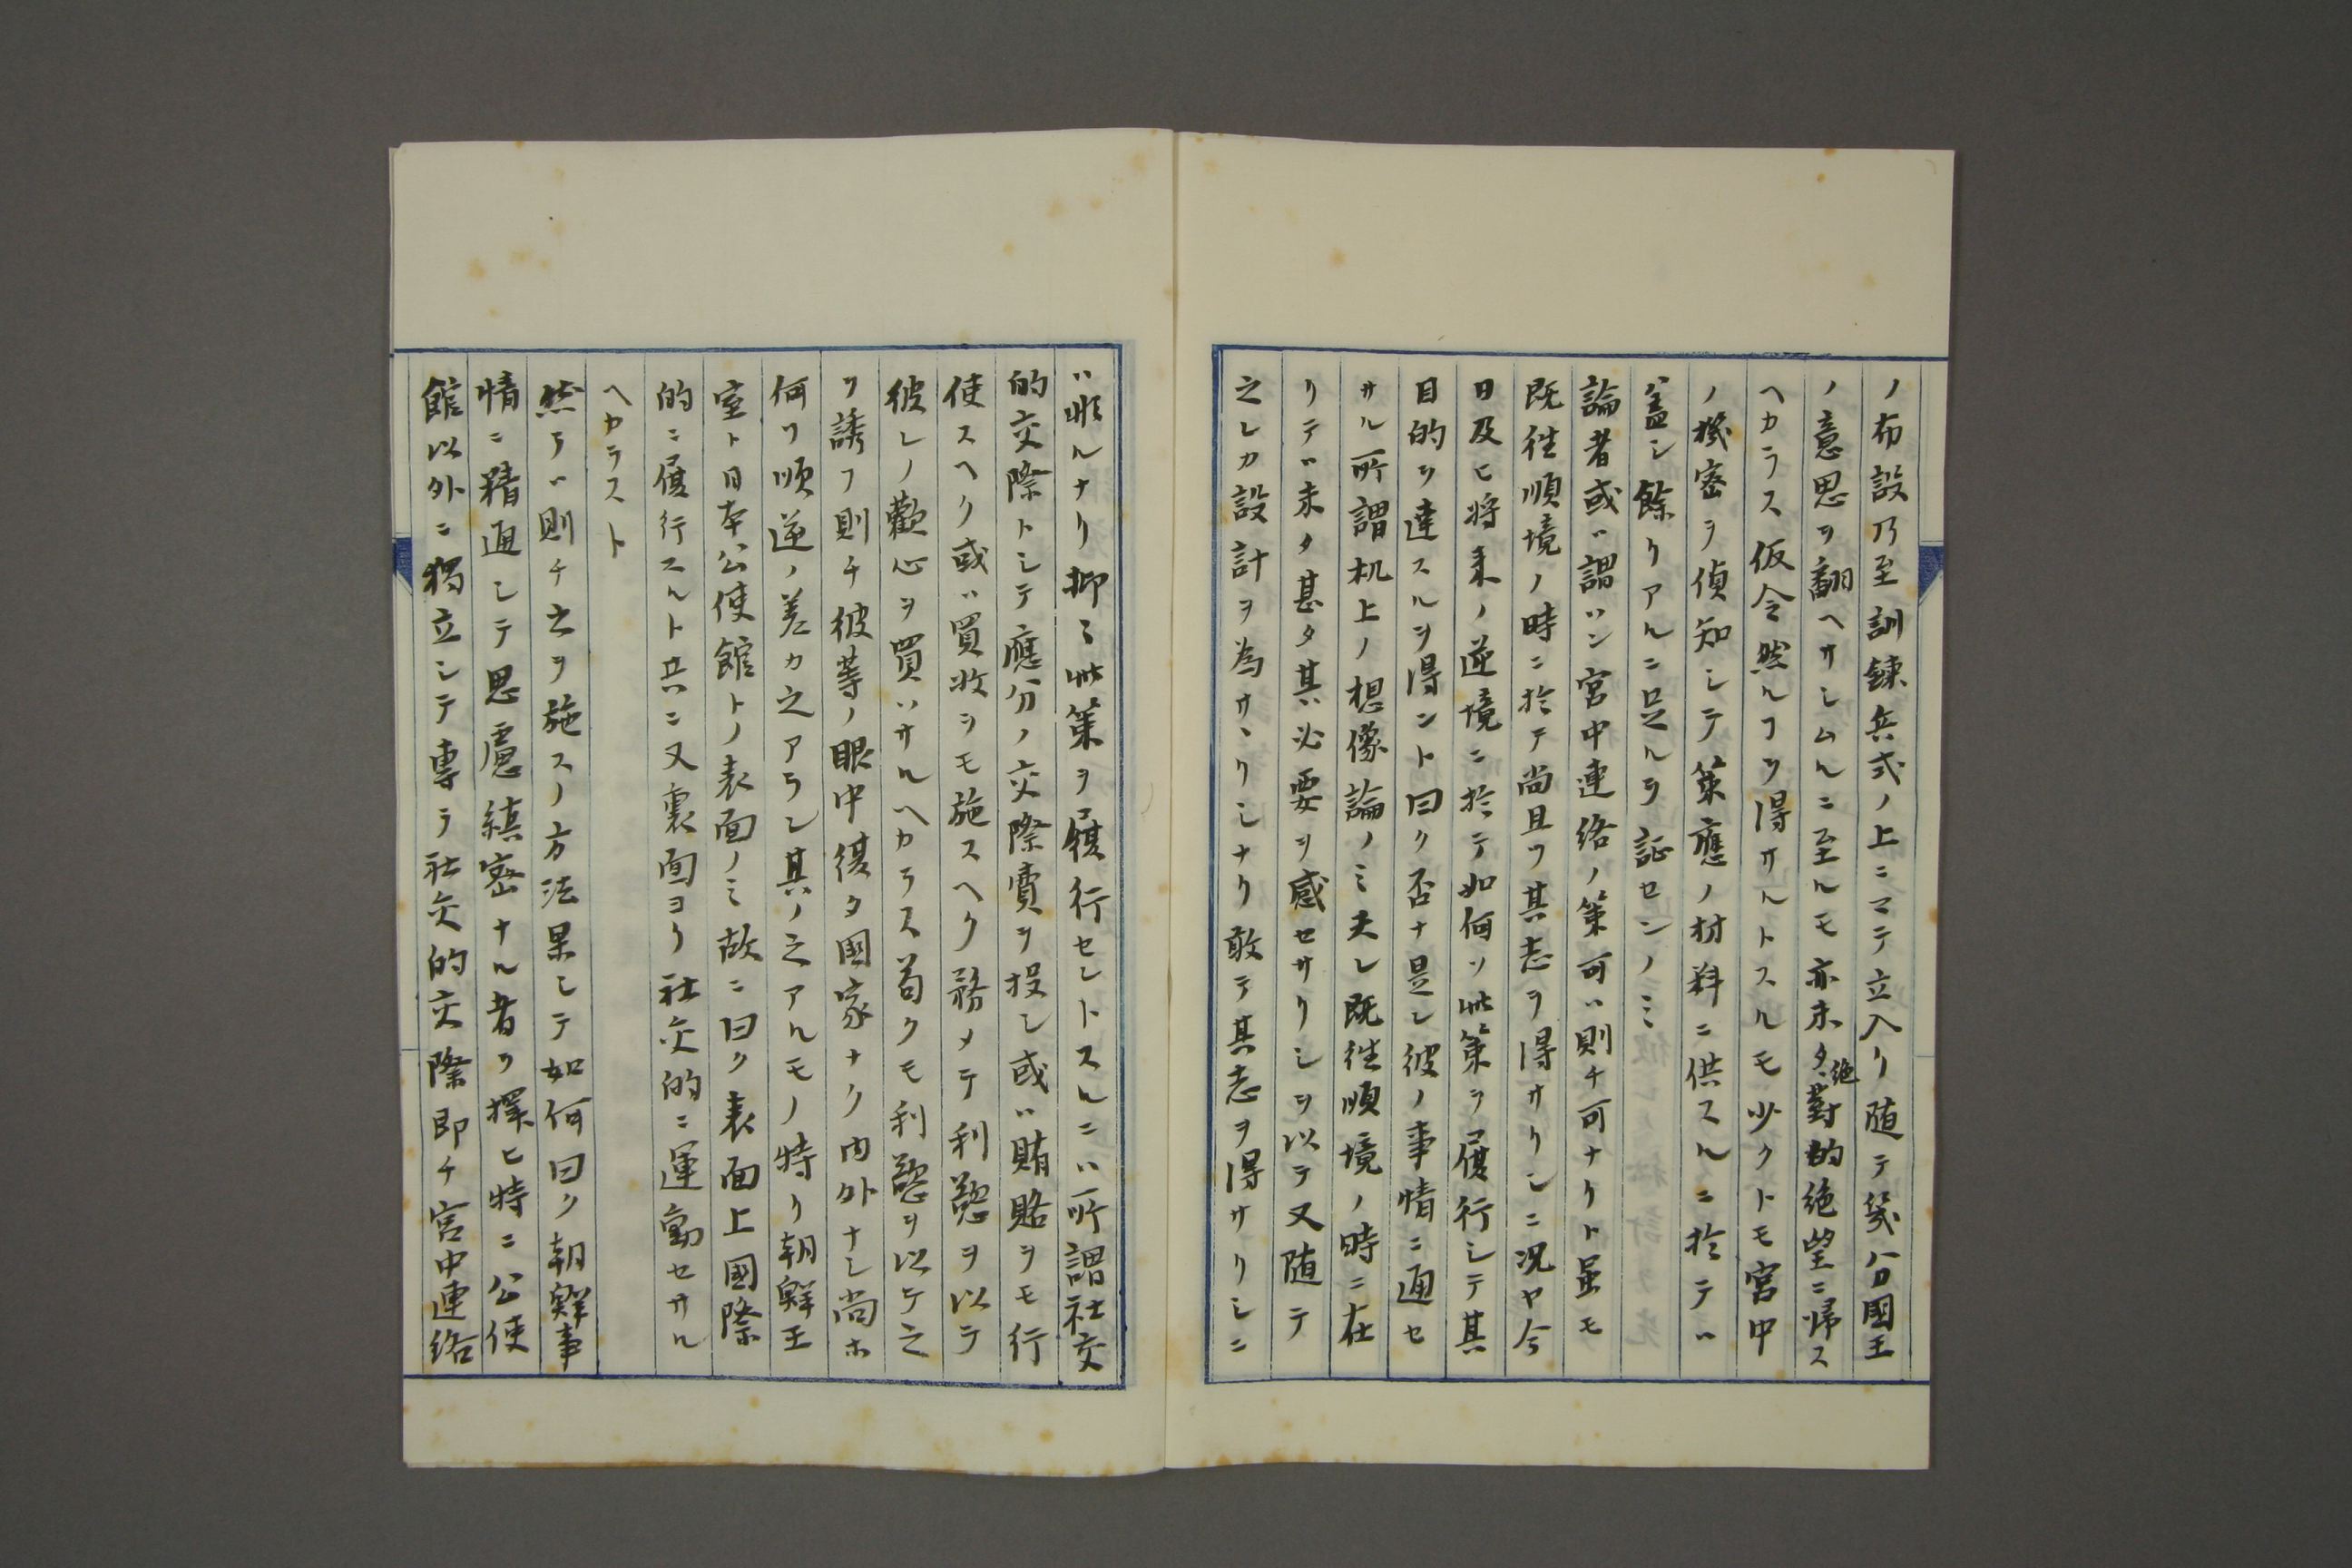 ノ布設乃至訓錬兵式ノ上ニマテ立入リ随テ幾分國王
ノ意思ヲ翻ヘサシムルニ至ルモ亦未タ絶對的絶望ニ帰ス
ヘカラス仮令然ルヿヲ得サルトスルモ少クトモ宮中
ノ機密ヲ偵知シテ策應ノ材料ニ供スルニ於テハ
蓋シ餘リアルニ足ルヲ証センノミ
論者或ハ謂ハン宮中連絡ノ策可ハ則チ可ナリト虽モ
既徃順境ノ時ニ於テ尚且ツ其志ヲ得サリシニ况ヤ今
日及ヒ将来ノ逆境ニ於テ如何ソ此策ヲ履行シテ其
目的ヲ達スルヲ得ント曰ク否ナ是レ彼ノ事情ニ通セ
サル所謂机上ノ想像論ノミ夫レ既徃順境ノ時ニ在
リテハ未タ甚タ其必要ヲ感セサリシヲ以テ又随テ
之レカ設計ヲ為サヽリシナリ敢テ其志ヲ得サリシニ
ハ非ルナリ抑ミ此策ヲ履行セントスルニハ所謂社交
的交際トシテ應分ノ交際費ヲ投シ或ハ賄賂ヲモ行
使スヘク或ハ買收ヲモ施スヘク務メテ利慾ヲ以テ
彼レノ歡心ヲ買ハサルヘカラス苟クモ利慾ヲ以テ之
ヲ誘フ則チ彼等ノ眼中復タ國家ナク内外ナシ尚ホ
何ソ順逆ノ差カ之アラン其ノ之アルモノ特リ朝鮮王
室ト日本公使館トノ表面ノミ故ニ曰ク表面上國際
的ニ履行スルト共ニ又裏面ヨリ社交的ニ運動セサル
ヘカラスト
然ラハ則チ之ヲ施スノ方法果シテ如何曰ク朝鮮事
情ニ精通シテ思慮縝密ナル者ヲ擇ヒ特ニ公使
館以外ニ獨立シテ専ラ社交的交際即チ宮中連絡